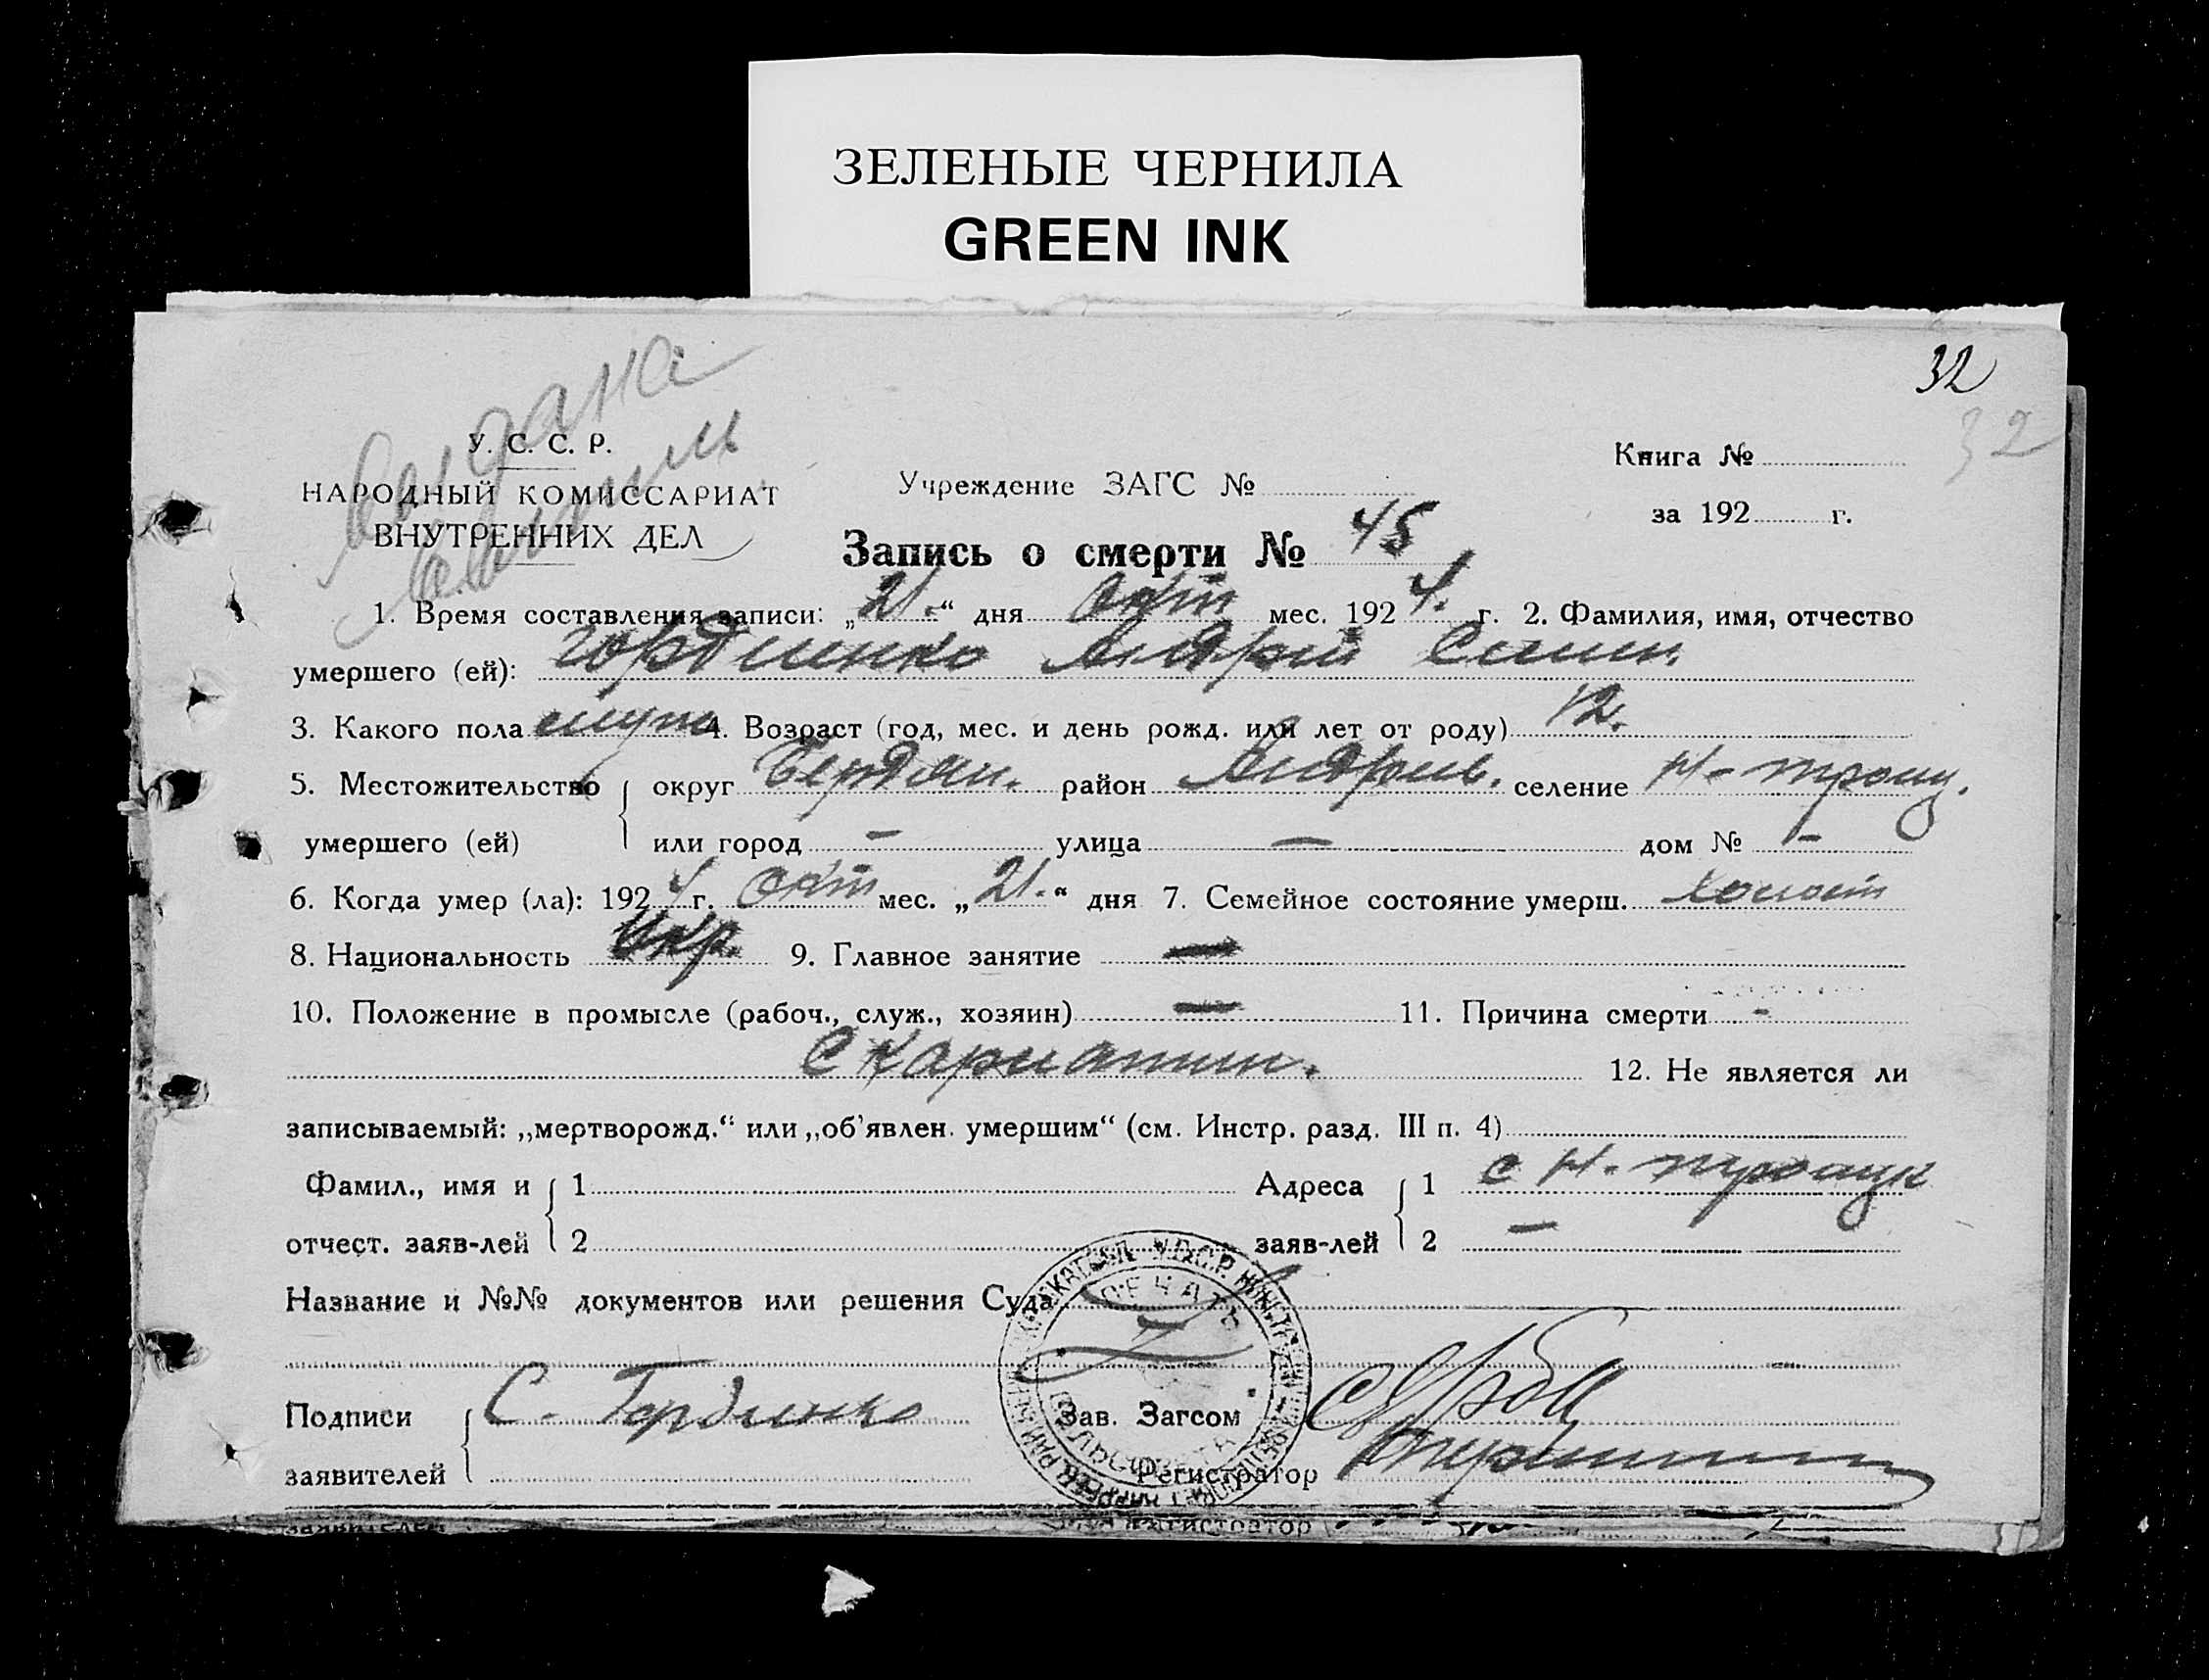 ЗЕЛЕНЫЕ ЧЕРНИЛА
GREEN INK
32
32
У. С. С. Р.
НАРОДНЫЙ КОМИССАРИАТ
ВНУТРЕННИХ ДЕЛ
Учреждение ЗАГС №
Книга №
за 192 г.
Запись о смерти № 45
1. Время составления записи: „21.“ дня Окт мес. 1924. г. 2. Фамилия, имя, отчество
умершего (ей): Гордиенко Андрей Симон.
3. Какого пола муж 4. Возраст (год, мес. и день рожд. или лет от роду) 12.
5. Местожительство округ Бердян. район Андреев. селение Н-троиц.
умершего (ей) или город — улица — дом № —
6. Когда умер (ла): 1924 г. Окт мес. „21.“ дня 7. Семейное состояние умерш. холост
8. Национальность Укр. 9. Главное занятие —
10. Положение в промысле (рабоч., служ., хозяин) — 11. Причина смерти -
Скарлатин. 12. Не является ли
записываемый: „мертворожд.“ или „об'явлен. умершим“ (см. Инстр. разд. III п. 4)
Фамил., имя и 1 Адреса 1 с Н-троицк
отчест. заяв-лей 2 заяв-лей 2 —
Название и №№ документов или решения Суда
ПЕЧАТЬ
Подписи С. Гордиенко Зав. Загсом
заявителей Регистратор